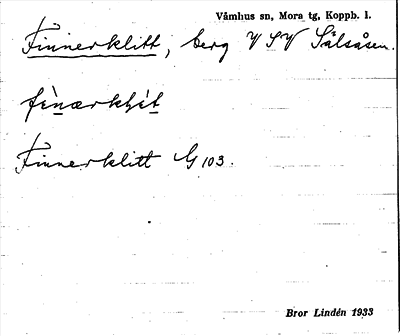 Våmhus sn, Mora tg, Koppb. l.
Finnerklitt, berg V S V Sålsåsen.
Finnerklitt G 103.
Bror Lindén 1933